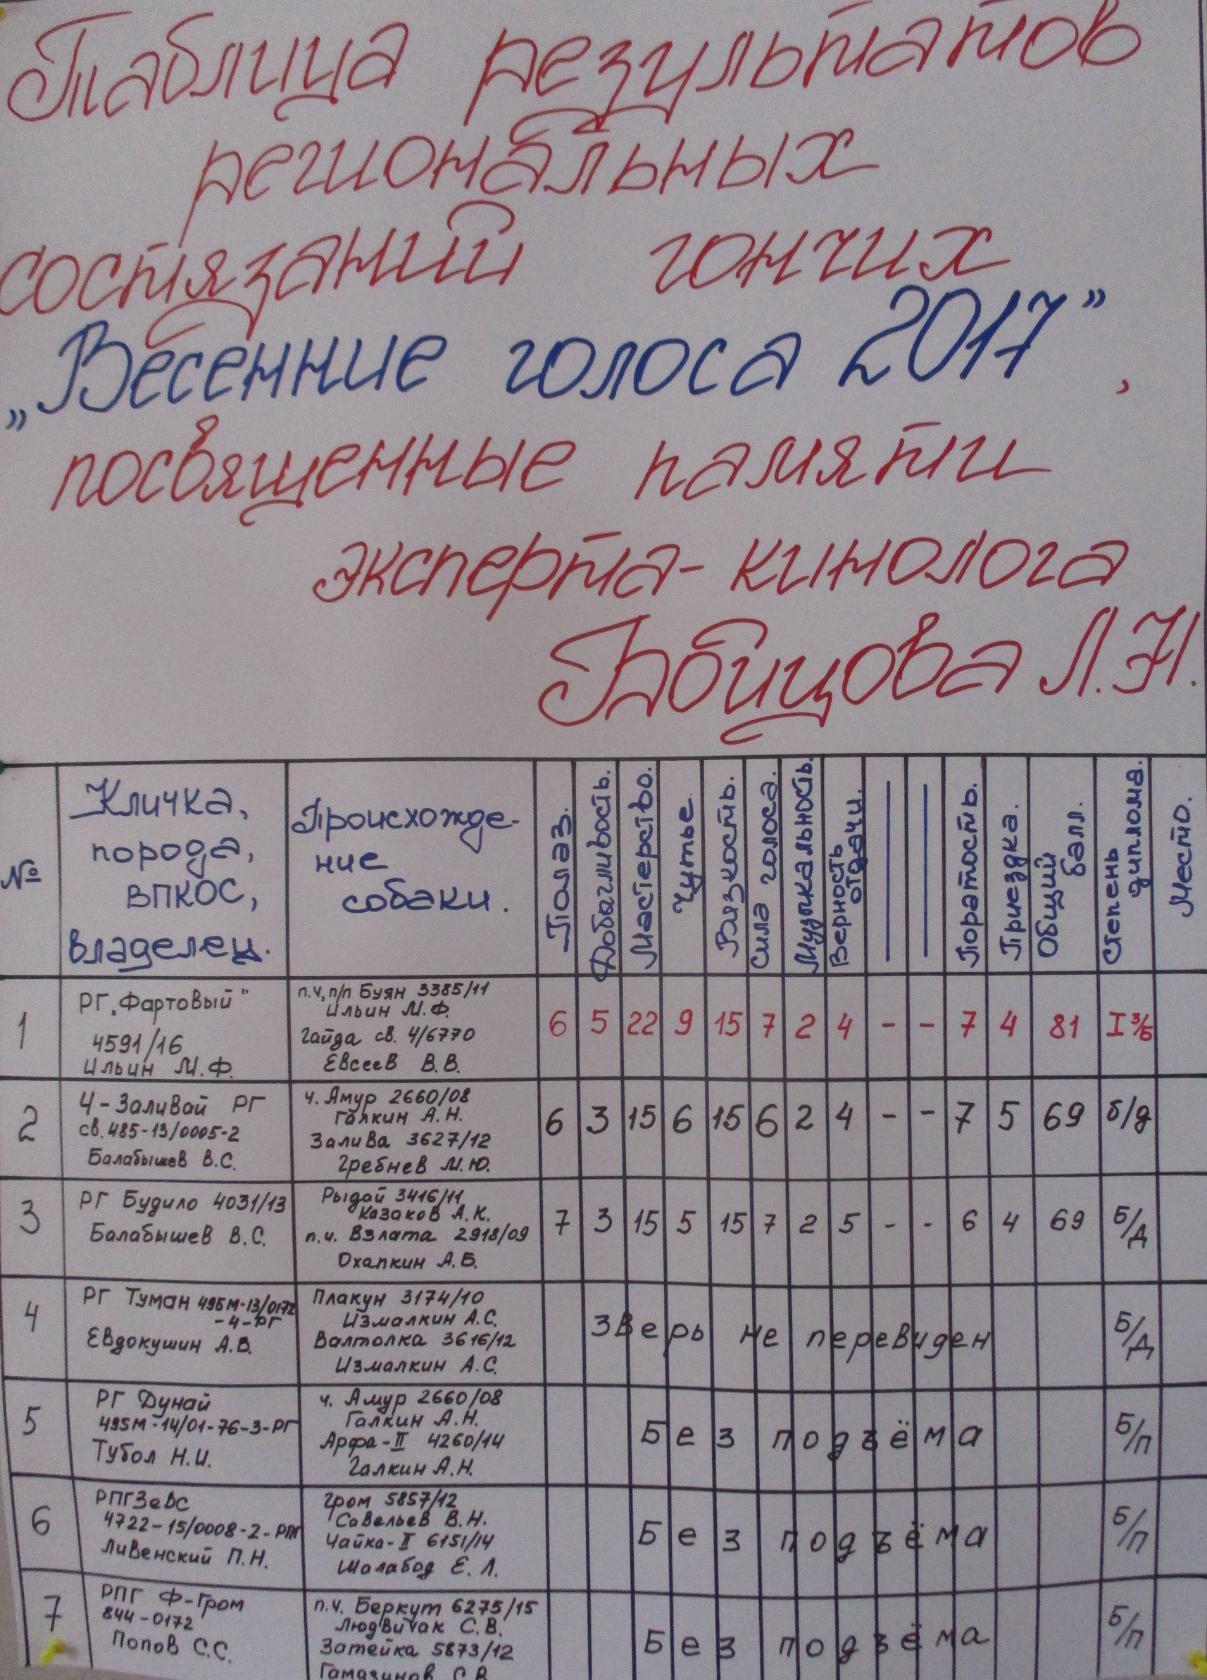 Таблица результатов
региональных
состязаний гончих
„Весенние голоса 2017”,
посвященные памяти
эксперта-кинолога
Бабицова Л.Н.
№
Кличка,
порода,
ВПКОС,
владелец.
Происхожде-
ние
собаки.
Полаз.
Добычливость.
Мастерство.
Чутье.
Вязкость.
Сила голоса.
Музыкальность.
Верность
отдачи.
Поратость.
Приездка.
Общий
балл.
Степень
диплома.
Место.
1
РГ „Фартовый"
4591/16
Ильин М.Ф.
п.ч, п/п Буян 3385/11
Ильин М.Ф.
Гайда св. 4/6770
Евсеев В.В.
6 5 22 9 15 7 2 4 - - 7 4 81 I з/б
2
Ч-Заливай РГ
св.485-13/0005-2
Балабышев В.С.
ч. Амур 2660/08
Галкин А.Н.
Залива 3627/12
Гребнев М.Ю.
6 3 15 6 15 6 2 4 - - 7 5 69 б/д
3
РГ Будило 4031/13
Балабышев В.С.
Рыдай 3416/11
Казаков А.К.
п.ч. Взлата 2918/09
Охапкин А.Б.
7 3 15 5 15 7 2 5 - - 6 4 69 Б/Д
4
РГ Туман 495М-13/0172
-4-РГ
Евдокушин А.В.
Плакун 3174/10
Измалкин А.С.
Валтолка 3616/12
Измалкин А.С.
Зверь не перевиден Б/Д
5
РГ Дунай
495М-14/01-76-3-РГ
Тубол Н.И.
ч. Амур 2660/08
Галкин А.Н.
Арфа-II 4260/14
Галкин А.Н.
Без подъёма Б/П
6
РПГ Зевс
4722-15/0008-2-РПГ
Ливенский П.Н.
Гром 5857/12
Савельев В.Н.
Чайка-I 6151/14
Шалабод Е.Л.
Без подъёма Б/П
7
РПГ Ф-Гром
844-0172
Попов С.С.
п.ч. Беркут 6275/15
Людвичак С.В.
Затейка 5873/12
Без подъёма Б/П